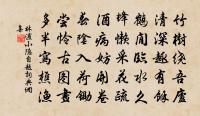 竹樹繞吾廬
清深趣有餘
鶴閒臨水久
蜂懶採花疏
酒病妨開卷
春陰入荷鋤
嘗憐古圖畫
多半寫樵漁
林逋小隱自題詞典網
集